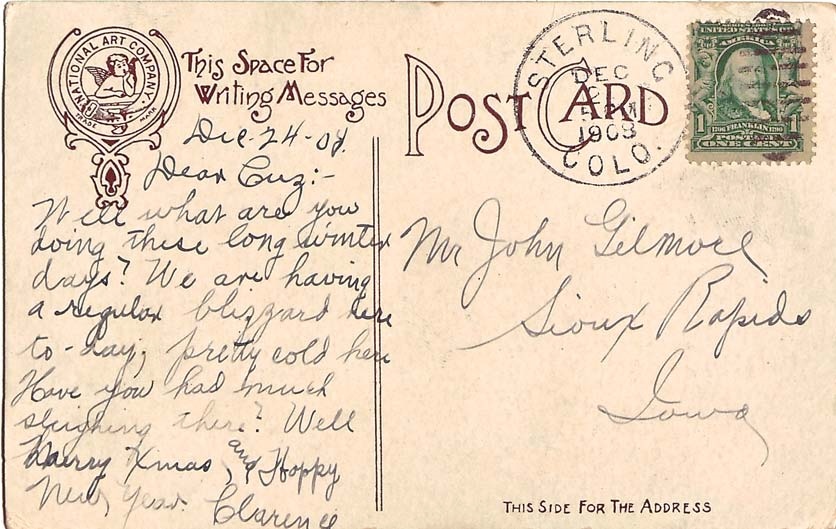 NATIONAL ART COMPANY.
TRADE MARK
This Space For
Writing Messages
POST CARD
STERLING
DEC
1908
COLO.
UNITED STATES OF
AMERICA
1 1706 FRANKLIN 1790 1
POSTAGE
ONE CENT
Dec. 24-08.
Dear Cuz:-
Well what are you
doing these long winter
days? We are having
a regular blizzard here
to-day, pretty cold here
Have you had much
sleighing there? Well
Merry Xmas, and Happy
New Year. Clarence
Mr John Gilmore
Sioux Rapids
Iowa
THIS SIDE FOR THE ADDRESS